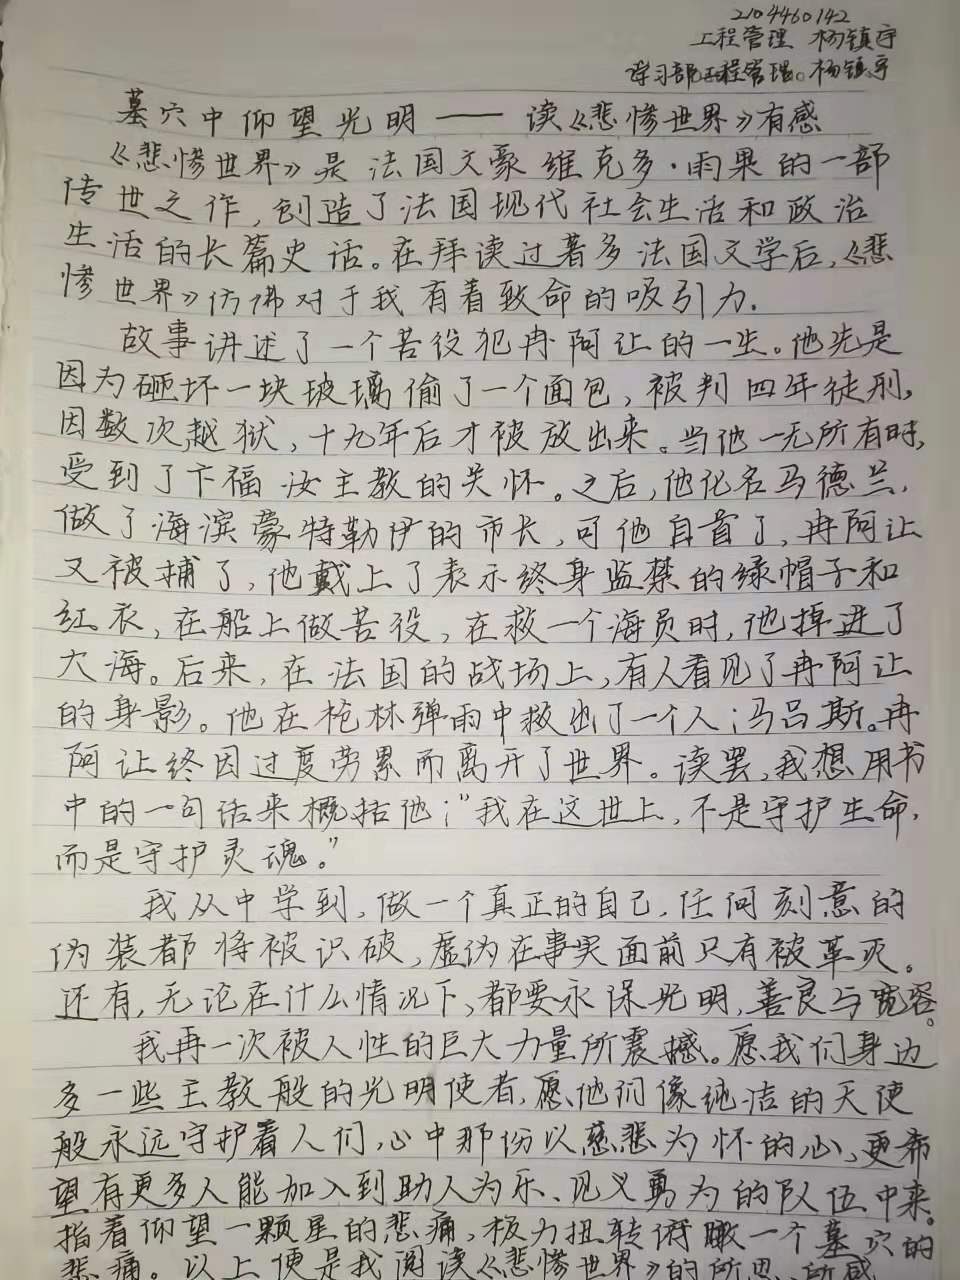 2104460142
工程管理 杨镇宇
学习部工程管理。杨镇宇
墓穴中仰望光明——读《悲惨世界》有感
《悲惨世界》是法国文豪维克多·雨果的一部
传世之作,创造了法国现代社会生活和政治
生活的长篇史话。在拜读过著多法国文学后,《悲
惨世界》仿佛对于我有着致命的吸引力.
故事讲述了一个苦役犯冉阿让的一生。他先是
因为砸坏一块玻璃偷了一个面包,被判四年徒刑,
因数次越狱,十九年后才被放出来。当他一无所有时,
受到了卞福汝主教的关怀。之后,他化名马德兰,
做了海滨蒙特勒伊的市长,可他自首了,冉阿让
又被捕了,他戴上了表示终身监禁的绿帽子和
红衣,在船上做苦役,在救一个海员时,他掉进了
大海。后来,在法国的战场上,有人看见了冉阿让
的身影。他在枪林弹雨中救出了一个人:马吕斯。冉
阿让终因过度劳累而离开了世界。读罢,我想用书
中的一句话来概括他:“我在这世上,不是守护生命,
而是守护灵魂。”
我从中学到,做一个真正的自己,任何刻意的
伪装都将被识破,虚伪在事实面前只有被革灭。
还有,无论在什么情况下,都要永保光明,善良与宽容。
我再一次被人性的巨大力量所震撼。愿我们身边
多一些主教般的光明使者,愿他们像纯洁的天使
般永远守护着人们,心中那份以慈悲为怀的心,更希
望有更多人能加入到助人为乐、见义勇为的队伍中来。
指着仰望一颗星的悲痛,极力扭转俯瞰一个墓穴的
悲痛。以上便是我阅读《悲惨世界》的所思所感